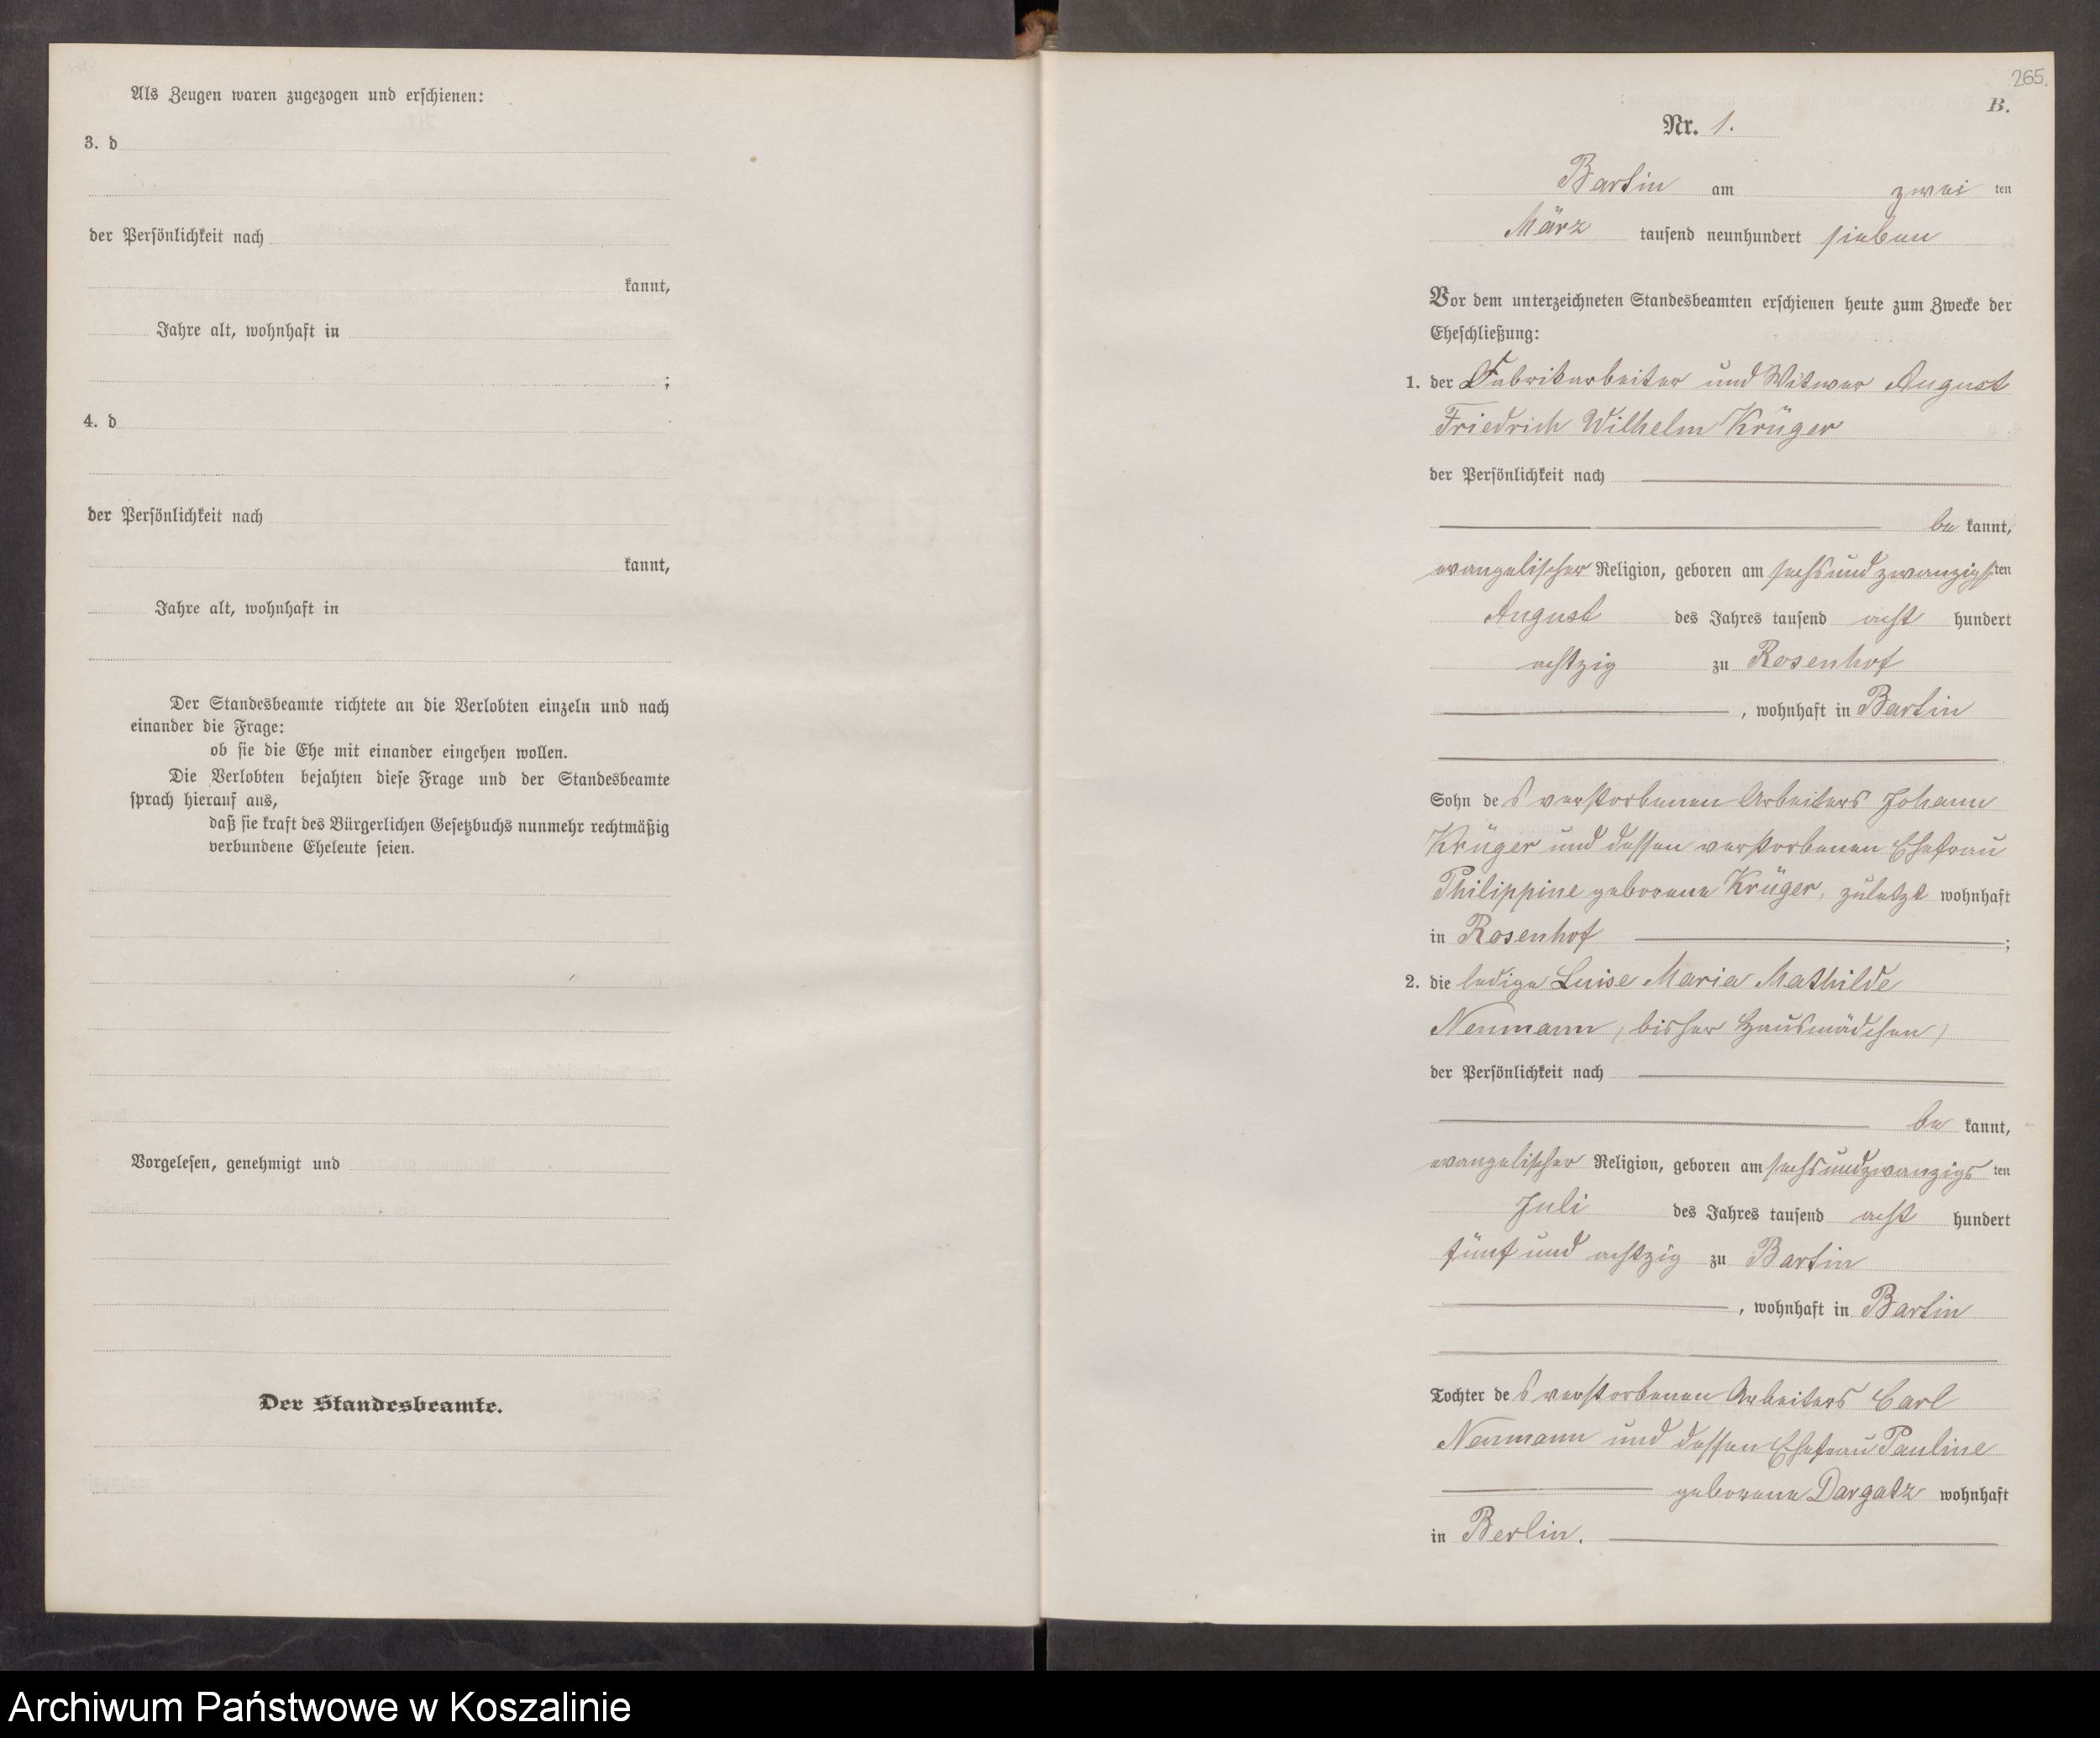 Als Zeugen waren zugezogen und erschienen:
3. d
der Persönlichkeit nach
kannt,
Jahre alt, wohnhaft in
;
4. d
der Persönlichkeit nach
kannt,
Jahre alt, wohnhaft in
Der Standesbeamte richtete an die Verlobten einzeln und nach
einander die Frage:
ob sie die Ehe mit einander eingehen wollen.
Die Verlobten bejahten diese Frage und der Standesbeamte
sprach hierauf aus,
daß sie kraft des Bürgerlichen Gesetzbuchs nunmehr rechtmäßig
verbundene Eheleute seien.
Vorgelesen, genehmigt und
Der Standesbeamte.
265.
B.
Nr. 1.
Bartin am zwei ten
März tausend neunhundert sieben
Vor dem unterzeichneten Standesbeamten erschienen heute zum Zwecke der
Eheschließung:
1. der Fabrikarbeiter und Witwer August
Friedrich Wilhelm Krüger
der Persönlichkeit nach
be kannt,
evangelischer Religion, geboren am sechsundzwanzigsten
August des Jahres tausend acht hundert
achtzig zu Rosenhof
, wohnhaft in Bartin
Sohn des verstorbenen Arbeiters Johann
Krüger und dessen verstorbenen Ehefrau
Philippine geborene Krüger, zuletzt wohnhaft
in Rosenhof ;
2. die ledige Luise Maria Mathilde
Neumann, (bisher Hausmädchen)
der Persönlichkeit nach
be kannt,
evangelischer Religion, geboren am sechsundzwanzigs ten
Juli des Jahres tausend acht hundert
fünf und achtzig zu Bartin
, wohnhaft in Bartin
Tochter des verstorbenen Arbeiters Carl
Neumann und dessen Ehefrau Pauline
geborene Dargatz wohnhaft
in Berlin.
Archiwum Państwowe w Koszalinie